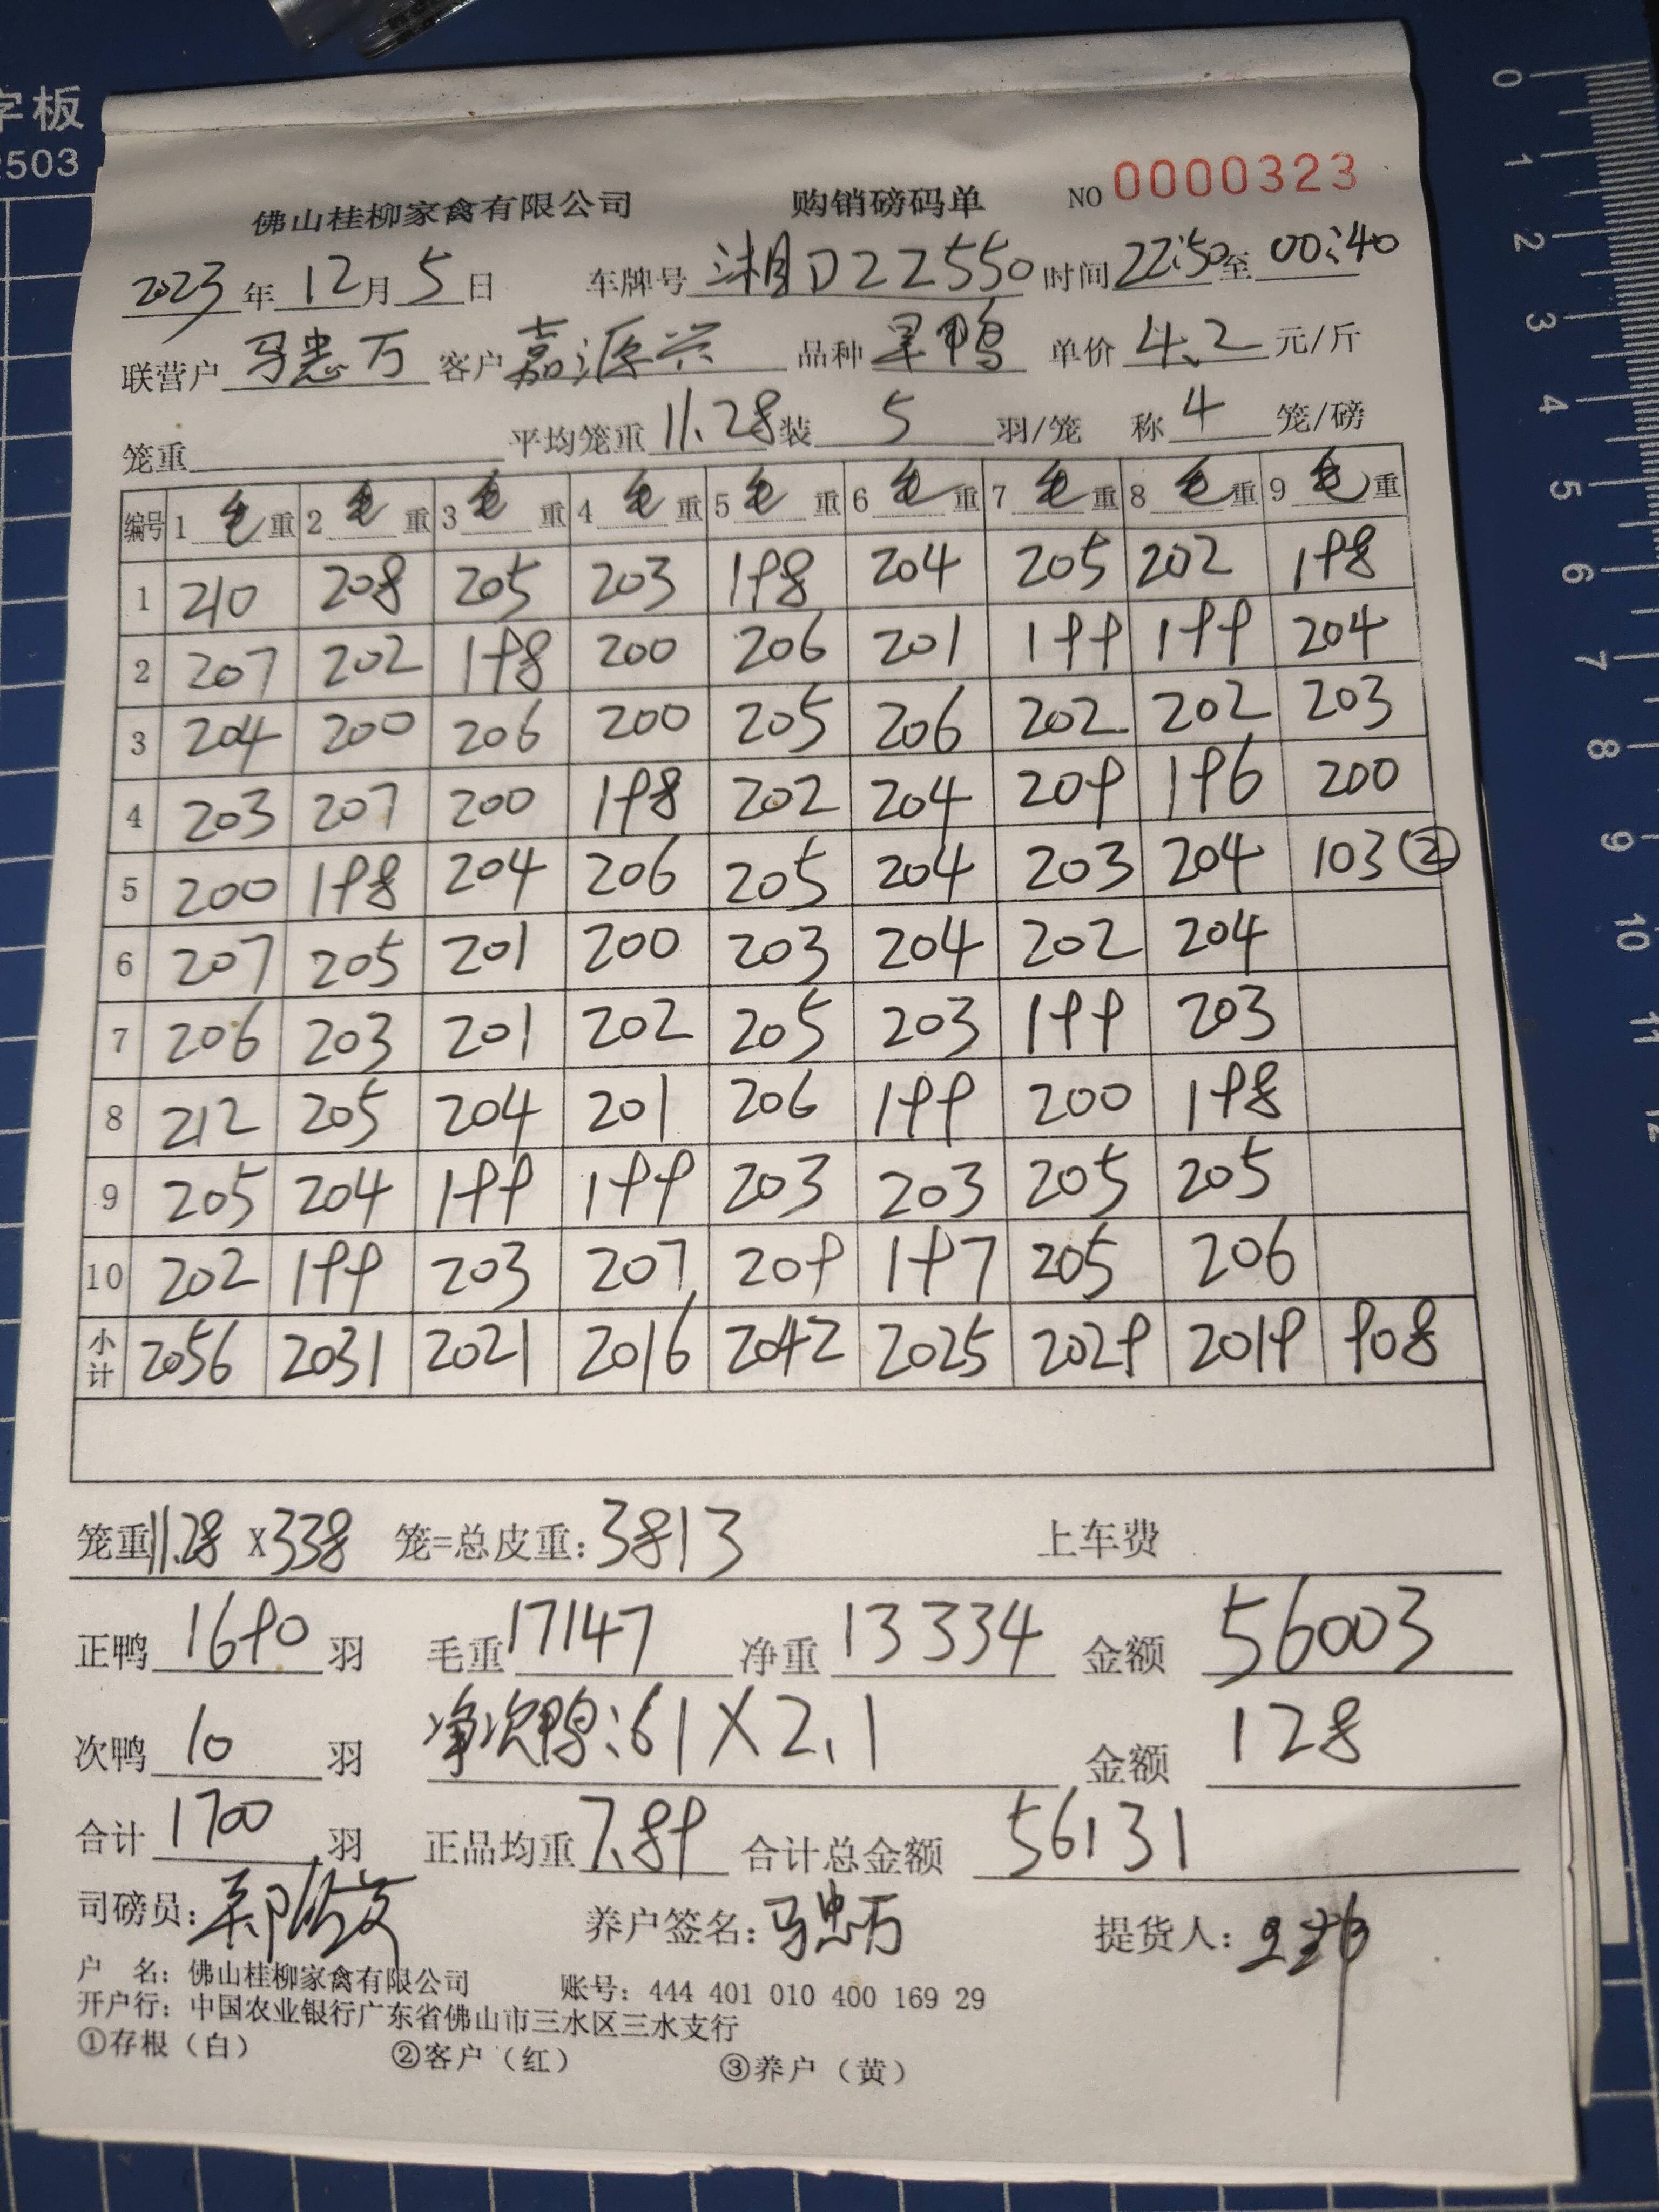 字板
2503
0 1 2 3 4 5 6 7 8 9 10 11 12
佛山桂柳家禽有限公司 购销磅码单 NO 0000323
2023年12月5日 车牌号 湘D22550 时间 22:50至00:40
联营户 马忠万 客户 嘉源兴 品种 旱鸭 单价 4.2 元/斤
笼重 平均笼重 11.28 装 5 羽/笼 称 4 笼/磅
编号 1 毛重 2 毛重 3 毛重 4 毛重 5 毛重 6 毛重 7 毛重 8 毛重 9 毛重
1 210 208 205 203 198 204 205 202 198
2 207 202 198 200 206 201 199 199 204
3 204 200 206 200 205 206 202 202 203
4 203 207 200 198 202 204 209 196 200
5 200 198 204 206 205 204 203 204 103②
6 207 205 201 200 203 204 202 204
7 206 203 201 202 205 203 199 203
8 212 205 204 201 206 199 200 198
9 205 204 199 199 203 203 205 205
10 202 199 203 207 209 197 205 206
小计 2056 2031 2021 2016 2042 2025 2029 2019 908
笼重11.28 X338 笼=总皮重:3813 上车费
正鸭 1690 羽 毛重 17147 净重 13334 金额 56003
次鸭 10 羽 净次鸭:61X2.1 金额 128
合计 1700 羽 正品均重 7.89 合计总金额 56131
司磅员: 养户签名:马忠万 提货人:
户 名:佛山桂柳家禽有限公司 账号:444 401 010 400 169 29
开户行:中国农业银行广东省佛山市三水区三水支行
①存根(白) ②客户(红) ③养户(黄)